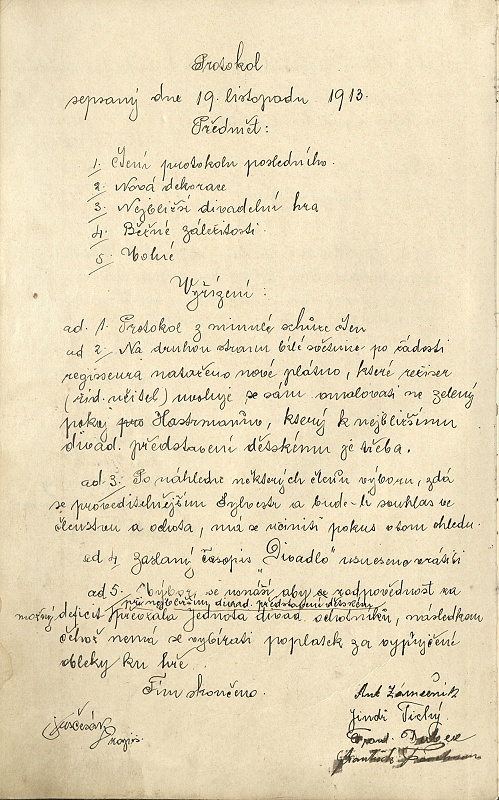 Protokol
sepsaný dne 19. listopadu 1913.
Předmět:
1. Čtení protokolu posledního.
2. Nová dekorace
3. Nejbližší divadelní hra
4. Běžné záležitosti.
5. Volné
Vyřízení:
ad. 1. Protokol z minulé schůze čten
ad 2. Na druhou stranu bílé světnice po žádosti
regisseura nataženo nové plátno, které režiser
(říd. učitel) uvoluje se sám omalovati na zelený
pokoj pro Hastrmanovu, který k nejbližšímu
divad. představení dětskému je třeba.
ad. 3. Po náhledu některých členů výboru, zdá
se proveditelnějším Sylvestr a bude-li souhlas ve
členstvu a ochota, má se učiniti pokus v tom ohledu.
ad 4. Zaslaný časopis "Divadlo" usneseno vrátiti
ad 5. Výbor se usnáší aby se zodpovědnost za
při nejbližším divad. představení dětském
možný deficit převzala Jednota divad. ochotníků, následkem
čehož nemá se vybírati poplatek za vypůjčené
obleky ku hře.
Tím skončeno.
Ant Zámečník
Jindř Tichý
Frant.
František